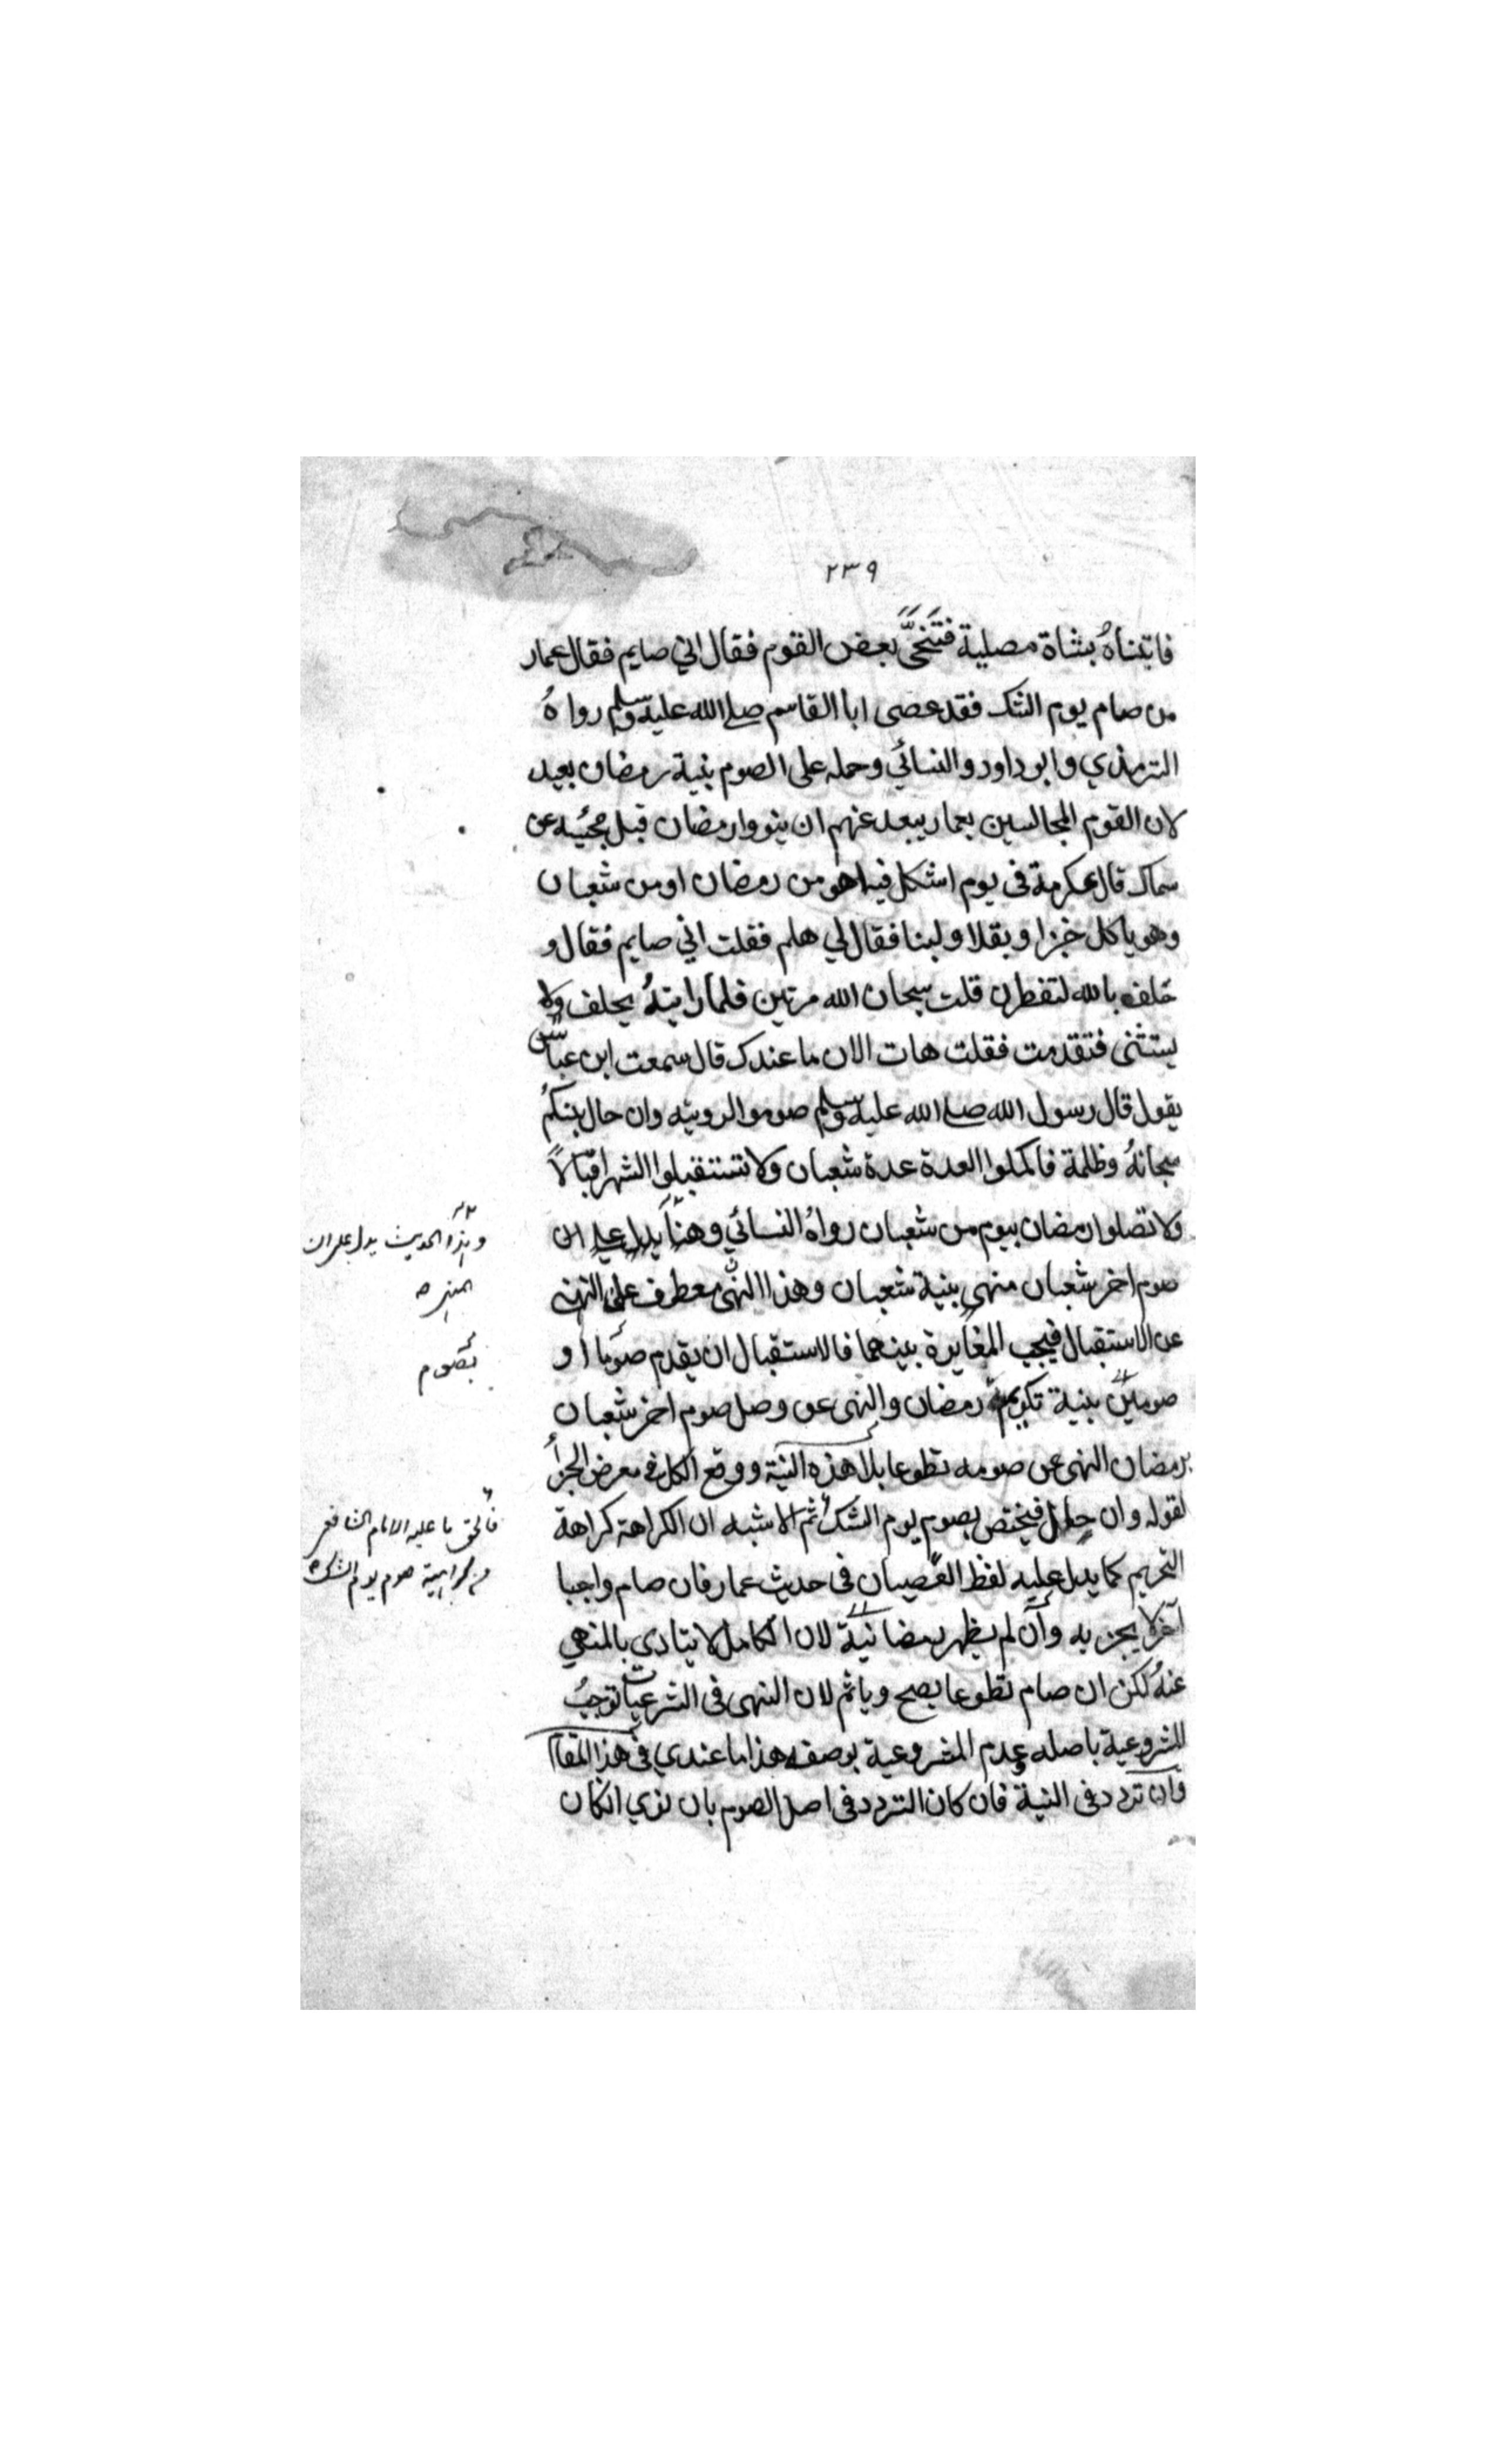 ٢٣٩
فاتيناهُ بشاة مصلية فتنحّى بعض القوم فقال اني صايم فقال عمار
من صام يوم الشك فقد عصى ابا القاسم صلى الله عليه وسلم رواهُ
الترمذي وابو داود والنسائي وحمله على الصوم بنية رمضان بعيد
لان القوم المجالسين بعمار يبعد عنهم ان ينووا رمضان قبل مجئيه عن
سماك قال عكرمة فى يوم اشكل فيه اهو من رمضان او من شعبان
وهو ياكل خبزا وبقلا ولبنا فقال لي هلم فقلت اني صايم فقال و
حلف بالله لتفطرن قلت سبحان الله مرتين فلما رايتهُ يحلف ولا
يستثنى فتقدمت فقلت هات الان ما عندك قال سمعت ابن عباس
يقول قال رسول الله صلى الله عليه وسلم صوموا لرويته وان حال بينكم
سحابهُ وظلمة فاكملوا العدة عدة شعبان ولا تستقبلوا الشهر اقبالاً
ولا تصلوا رمضان بيوم من شعبان رواهُ النسائي وهذا يدل على ان
وهذا الحديث يدل على ان
صوم اخر شعبان منهى بنية شعبان وهذا النهى معطوف على النهى
عن الاستقبال فيجب المغايرة بينهما فالاستقبال ان يقدم صوما او
بصوم
صومين بنية تكريم رمضان والنهى عن وصل صوم اخر شعبان
برمضان النهى عن صومه تطوعا بلا هذه النية ووقع الكل فى معرض الجزأ
لقوله وان حال فيختص بصوم يوم الشك ثم الاشبه ان الكراهة كراهة
فالحق ما عليه الامام الشافعي
من كراهية صوم يوم الشك
التحريم كما يدل عليه لفظ العصيان فى حديث عمار فان صام واجبا
آخر لا يجزيه وان لم يظهر رمضانيّة لان الكامل لا يتادى بالمنهي
عنهُ لكن ان صام تطوعا يصح وياثم لان النهى فى الشرعيات توجبُ
المشروعية باصله وعدم المشروعية بوصفه هذا ما عندي فى هذا المقام
وان تردد فى النية فان كان التردد فى اصل الصوم بان نوي ان كان